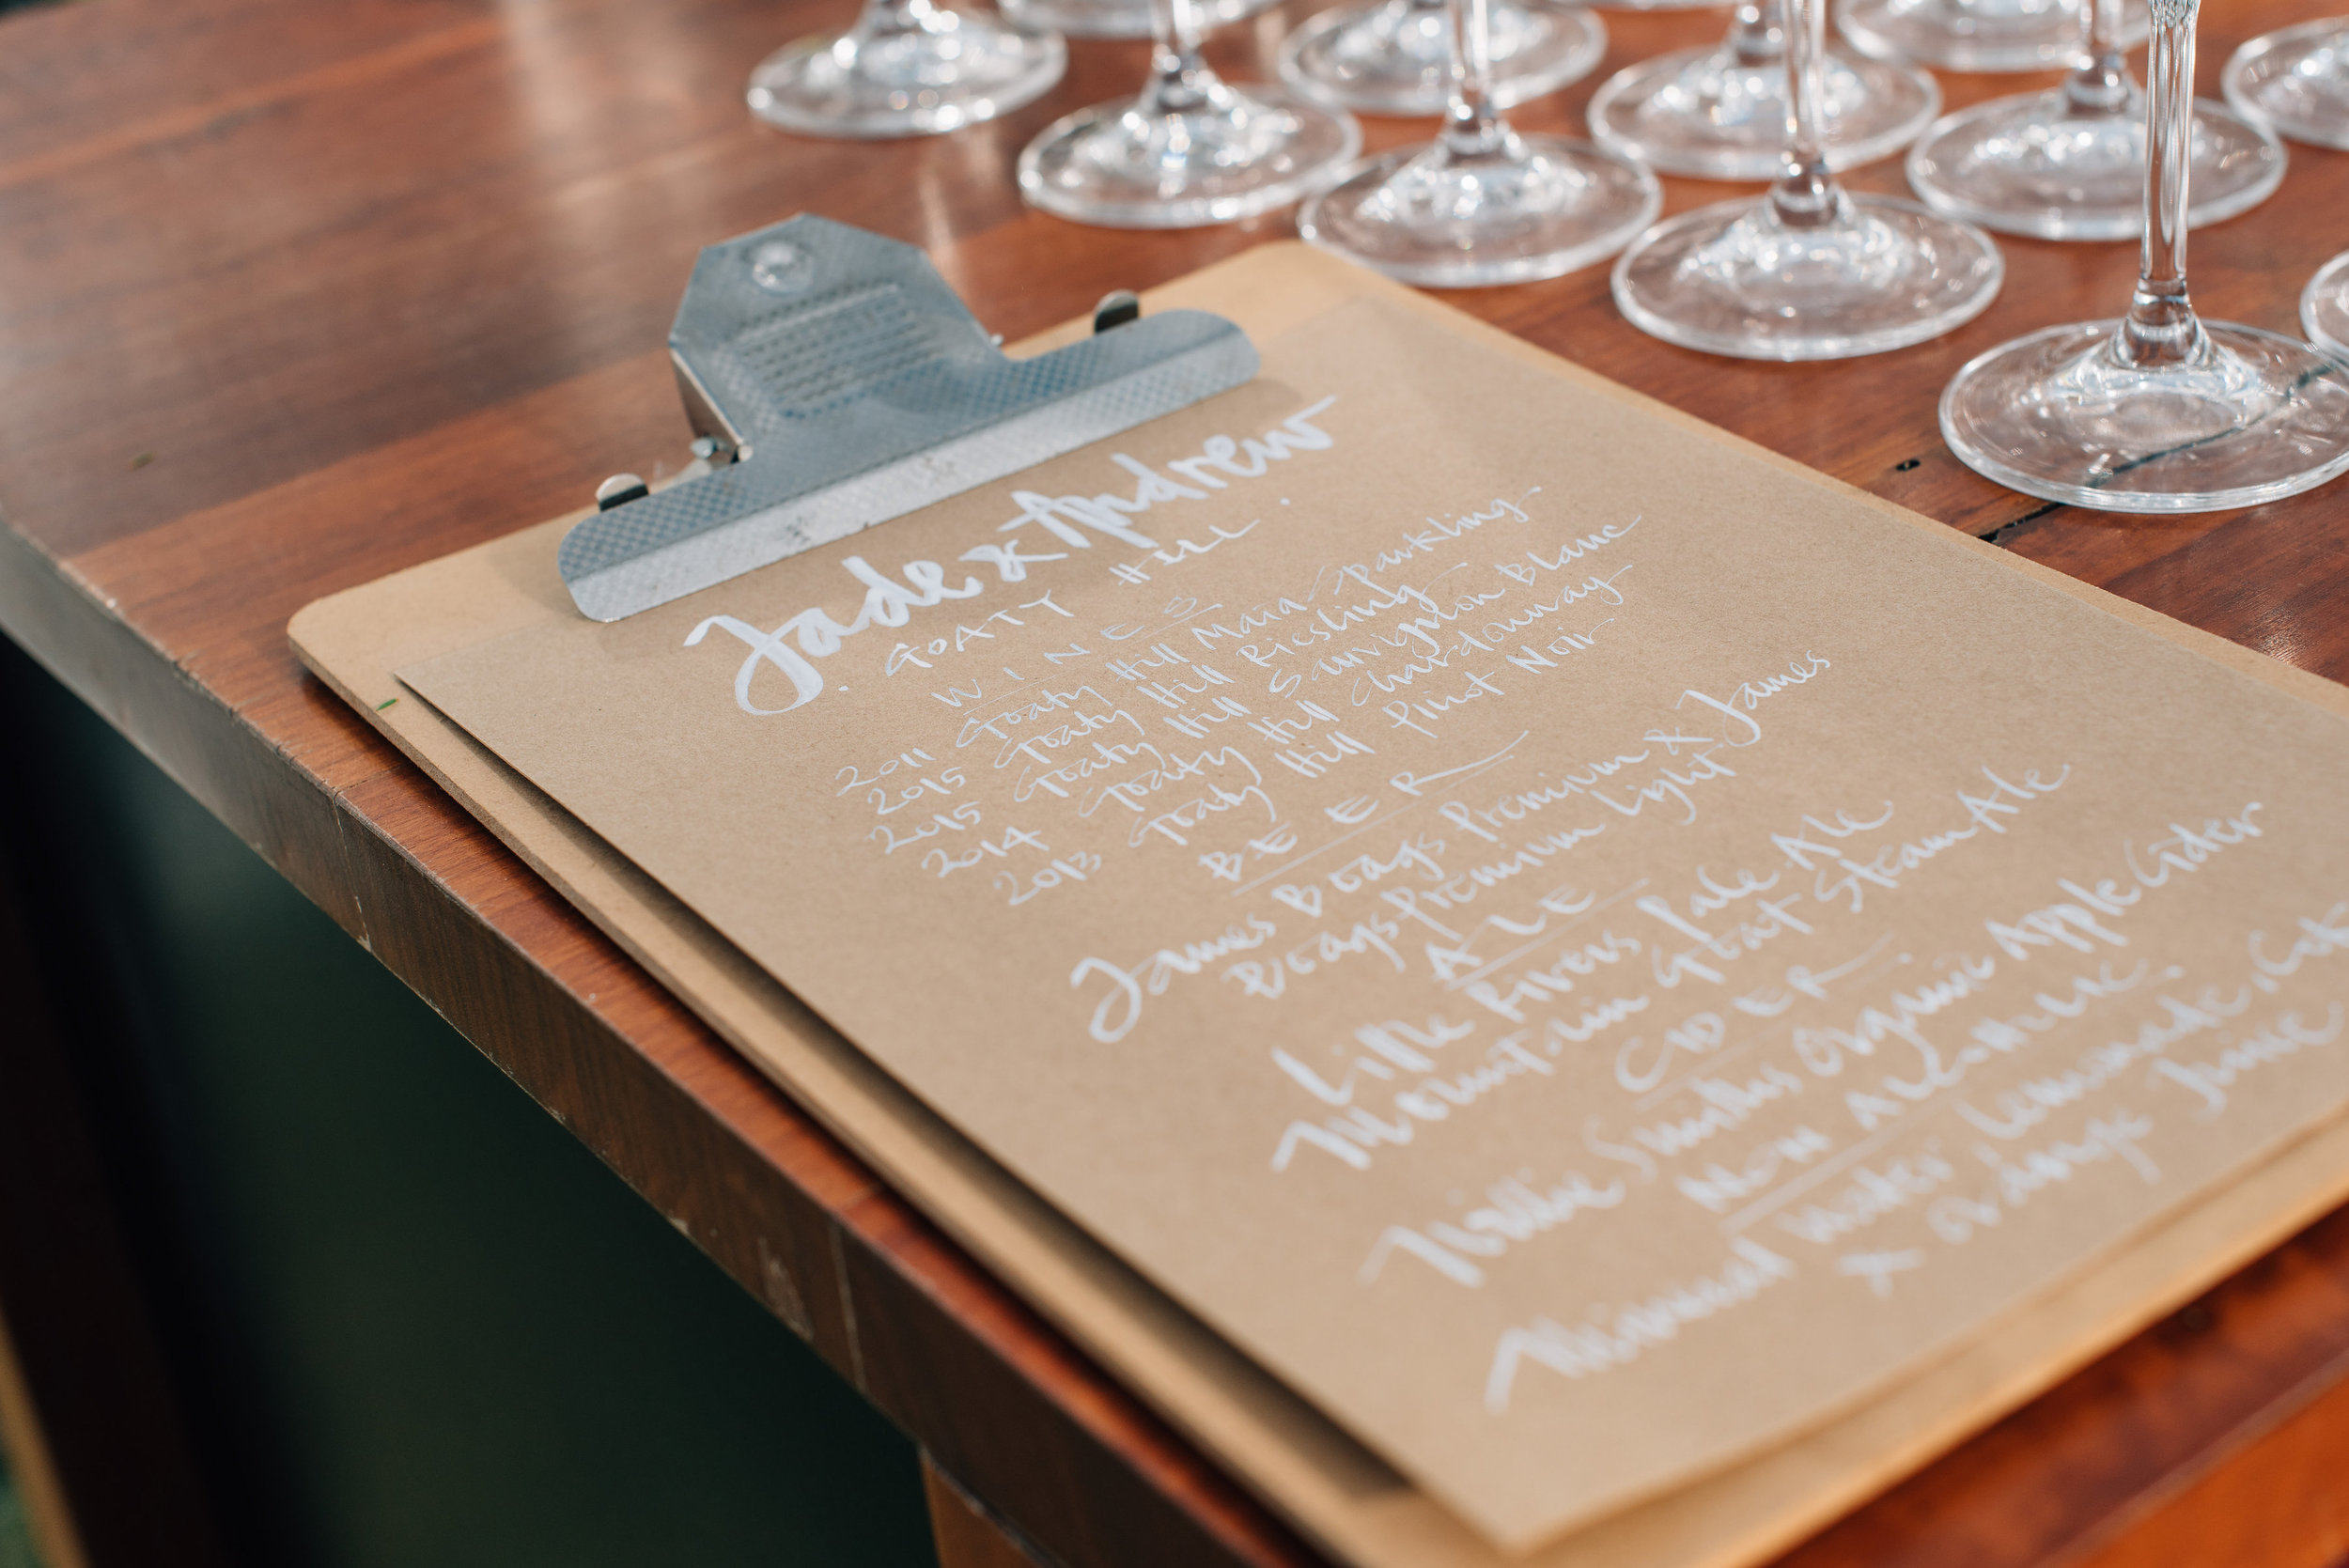 Jade & Andrew
. GOATY HILL .
WINES
2011 Goaty Hill Maia/Sparkling
2015 Goaty Hill Riesling
2015 Goaty Hill Sauvignon Blanc
2014 Goaty Hill Chardonnay
2013 Goaty Hill Pinot Noir
BEER
James Boags Premium & James
Boags Premium Light
ALE
Little Rivers Pale Ale
Mountain Goat Steam Ale
CIDER
Willie Smiths Organic Apple Cider
NON ALCOHOLIC
Mineral Water, Lemonade,
x Orange Juice